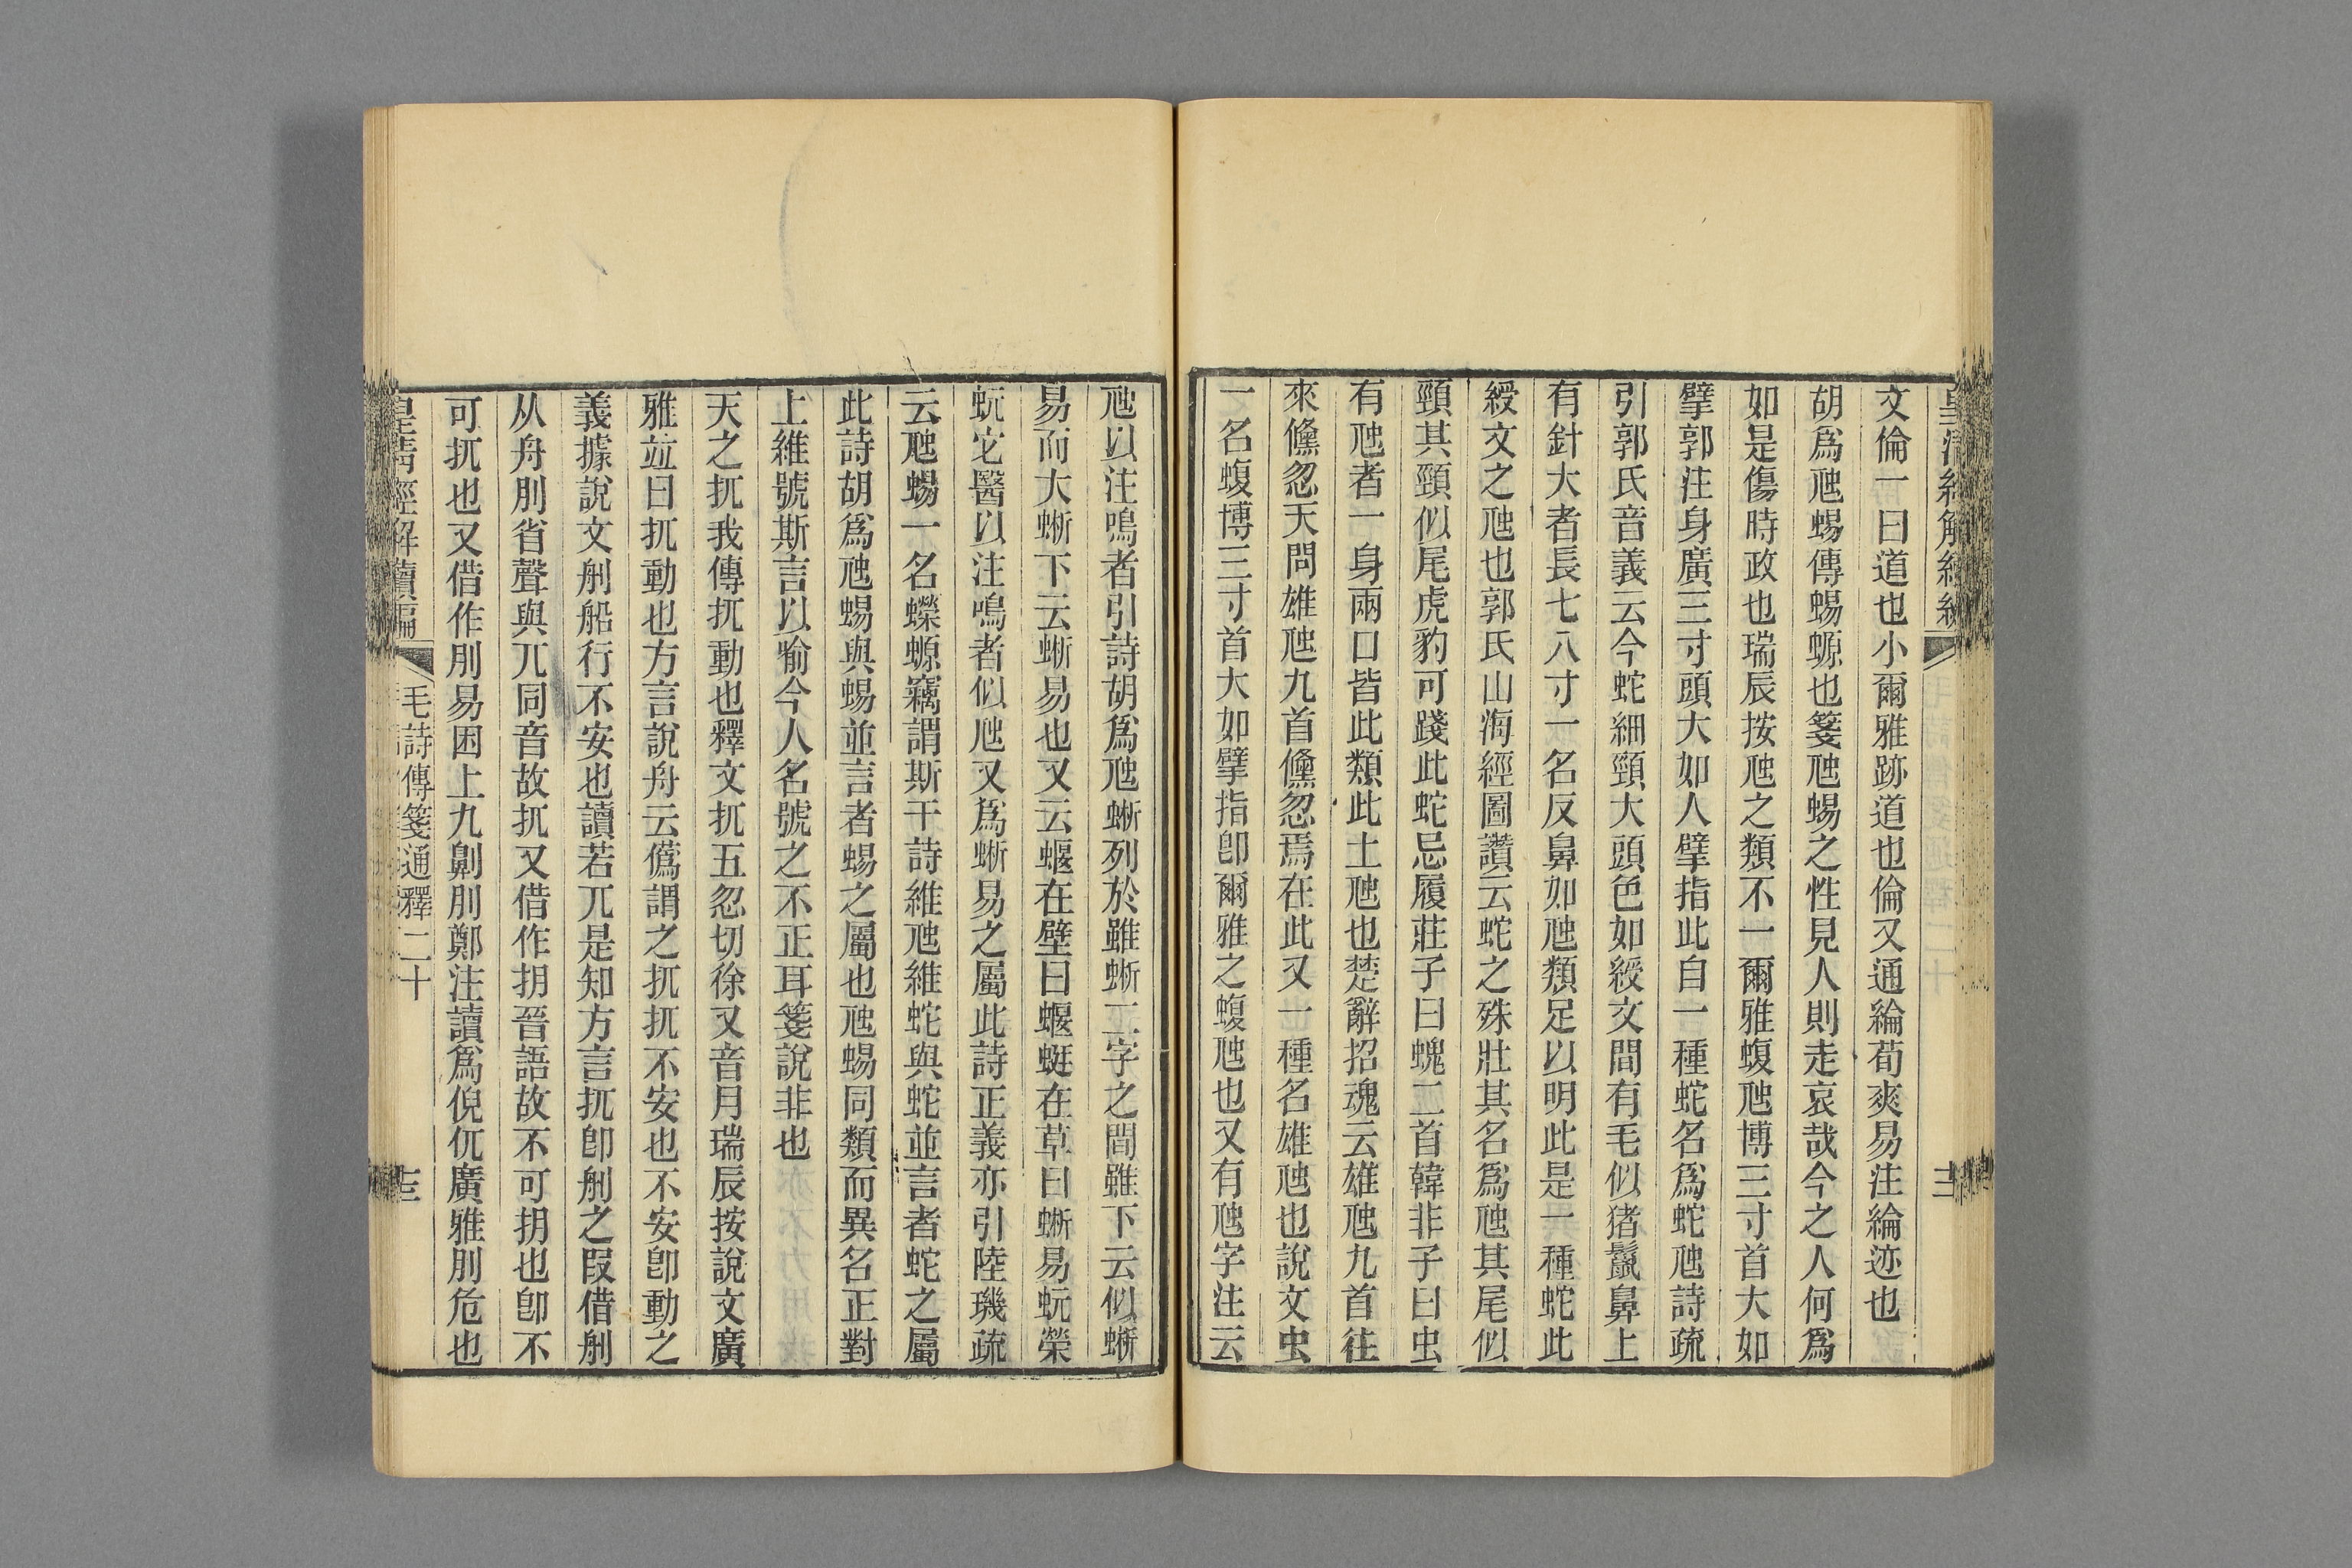 皇清經解續編
文倫一曰道也小爾雅跡道也倫又通綸荀爽易注綸迹也
胡爲虺蜴傳蜴螈也箋虺蜴之性見人則走哀哉今之人何爲
如是傷時政也瑞辰按虺之類不一爾雅蝮虺博三寸首大如
擘郭注身廣三寸頭大如人擘指此自一種蛇名爲蛇虺詩疏
引郭氏音義云今蛇細頸大頭色如綬文文間有毛似猪鬛鼻上
有針大者長七八寸一名反鼻如虺類足以明此是一種蛇此
綬文之虺也郭氏山海經圖讚云蛇之殊壯其名爲虺其尾似
頸其頸似尾虎豹可踐此蛇忌履莊子曰螝二首韓非子曰虫
有虺者一身兩口皆此類此土虺也楚辭招魂云雄虺九首往
來儵忽天問雄虺九首儵忽焉在此又一種名雄虺也說文虫
一名蝮博三寸首大如擘指卽爾雅之蝮虺也又有虺字注云
虺以注鳴者引詩胡爲虺蜥列於雖蜥二字之間雖下云似蜥
易而大蜥下云蜥易也又云蝘在壁曰蝘蜓在草曰蜥易蚖榮
蚖它醫以注鳴者似虺又爲蜥易之屬此詩正義亦引陸璣疏
云虺蜴一名蠑螈竊謂斯干詩維虺維蛇與蛇並言者蛇之屬
此詩胡爲虺蜴與蜴並言者蜴之屬也虺蜴同類而異名正對
上維號斯言以喻今人名號之不正耳箋說非也
天之扤我傳扤動也釋文扤五忽切徐又音月瑞辰按說文廣
雅竝曰扤動也方言說舟云僞謂之扤扤不安也不安卽動之
義據說文刖船行不安也讀若兀是知方言扤卽刖之叚借刖
从舟刖省聲與兀同音故扤又借作抈晉語故不可抈也卽不
可扤也又借作刖易困上九劓刖鄭注讀爲倪㐳廣雅刖危也
皇清經解續編 毛詩傳箋通釋二十 十三